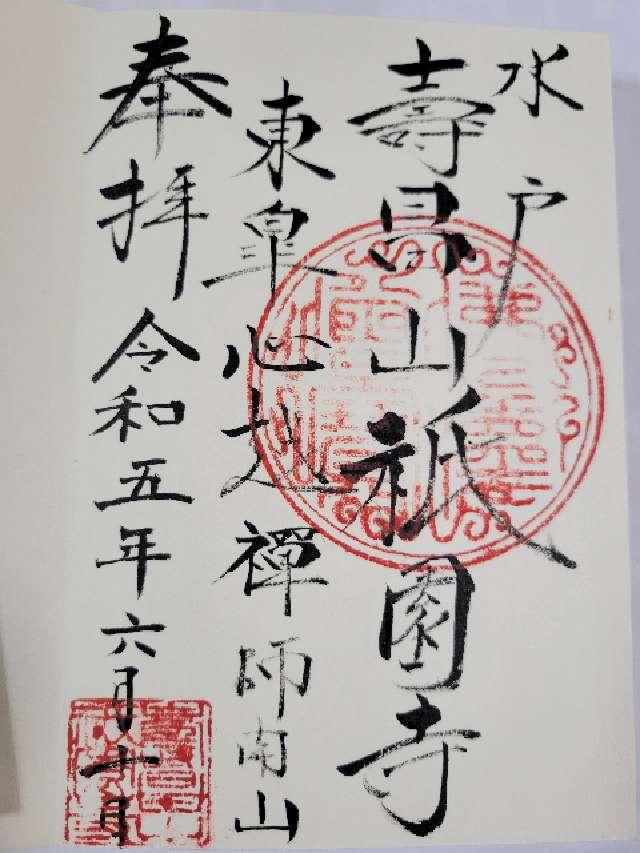 水戸
壽昌山祇園寺
東皐心越禪師開山
奉拝
令和五年六月十日